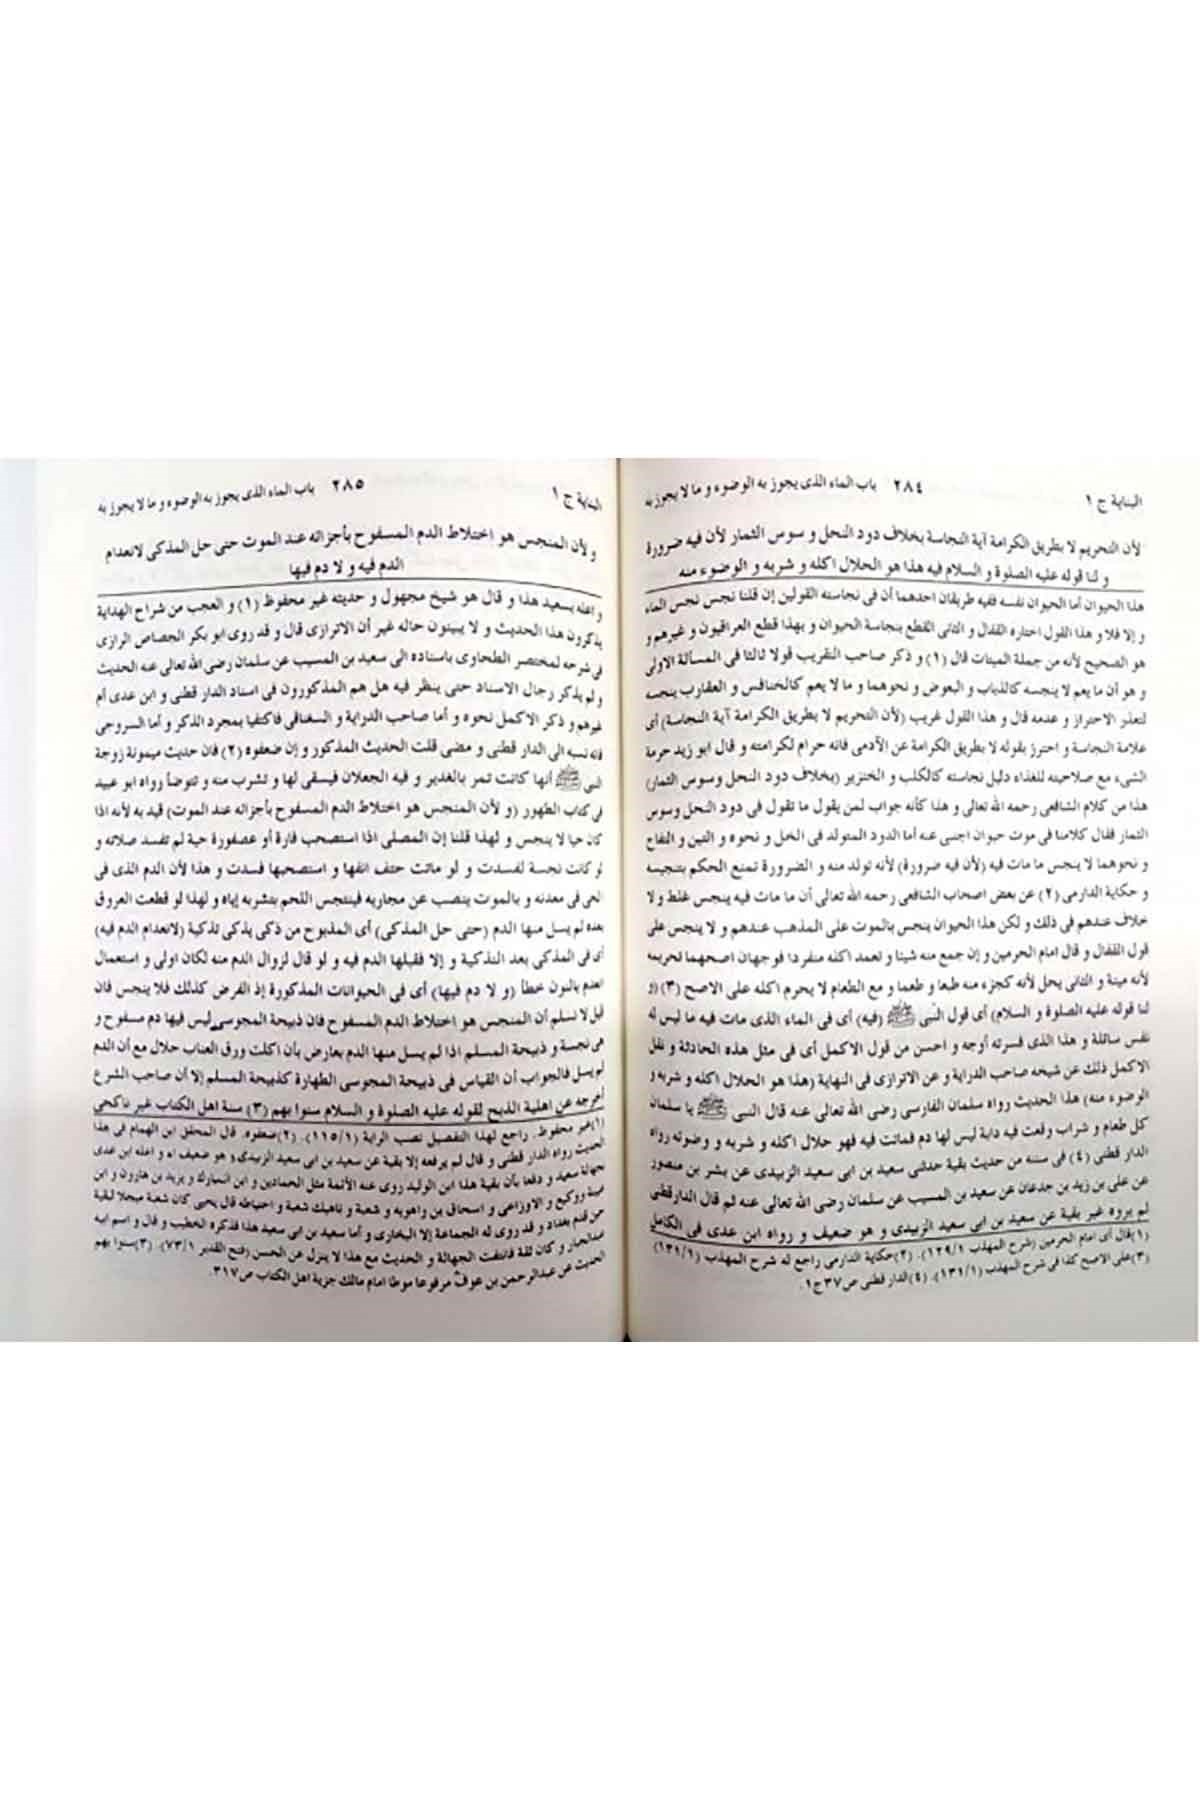 البناية ج ١ ٢٨٤ باب الماء الذى يجوز به الوضوء و ما لا يجوز به
لأن التحريم لا بطريق الكرامة آية النجاسة بخلاف دود النحل و سوس الثمار لأن فيه ضرورة
و لنا قوله عليه الصلوة و السلام فيه هذا هو الحلال اكله و شربه و الوضوء منه
هذا الحيوان أما الحيوان نفسه ففيه طريقان احدهما أن فى نجاسته القولين إن قلنا نجس نجس الماء
و إلا فلا و هذا القول اختاره القفال و الثانى القطع بنجاسة الحيوان و بهذا قطع العراقيون و غيرهم و
هو الصحيح لأنه من جملة الميتات قال (١) و ذكر صاحب التقريب قولا ثالثا فى المسألة الاولى
و هو أن ما يعم لا ينجسه كالذباب و البعوض و نحوهما و ما لا يعم كالخنافس و العقارب ينجسه
لتعذر الاحتراز و عدمه قال و هذا القول غريب (لأن التحريم لا بطريق الكرامة آية النجاسة) أى
علامة النجاسة و احترز بقوله لا بطريق الكرامة عن الآدمى فانه حرام لكرامته و قال ابو زيد حرمة
الشىء مع صلاحيته للغذاء دليل نجاسته كالكلب و الخنزير (بخلاف دود النحل وسوس الثمار)
هذا من كلام الشافعى رحمه الله تعالى و هذا كأنه جواب لمن يقول ما تقول فى دود النحل وسوس
الثمار فقال كلامنا فى موت حيوان اجنبى عنه أما الدود المتولد فى الخل و نحوه و التين و التفاح
و نحوهما لا ينجس ما مات فيه (لأن فيه ضرورة) لأنه تولد منه و الضرورة تمنع الحكم بتنجيسه
و حكاية الدارمى (٢) عن بعض اصحاب الشافعى رحمه الله تعالى أن ما مات فيه ينجس غلط و لا
خلاف عندهم فى ذلك و لكن هذا الحيوان ينجس بالموت على المذهب عندهم و لا ينجس على
قول القفال و قال امام الحرمين و إن جمع منه شيئا و تعمد اكله منفردا فوجهان اصحهما تحريمه
لأنه ميتة و الثانى يحل لأنه كجزء منه طبعا و طعما و مع الطعام لا يحرم اكله على الاصح (٣) (و
لنا قوله عليه الصلوة و السلام) أى قول النبى ﷺ (فيه) أى فى الماء الذى مات فيه ما ليس له
نفس سائلة و هذا الذى فسرته أوجه و احسن من قول الاكمل أى فى مثل هذه الحادثة و نقل
الاكمل ذلك عن شيخه صاحب الدراية و عن الاترازى فى النهاية (هذا هو الحلال اكله و شربه و
الوضوء منه) هذا الحديث رواه سلمان الفارسى رضى الله تعالى عنه قال النبى ﷺ يا سلمان
كل طعام و شراب وقعت فيه دابة ليس لها دم فماتت فيه فهو حلال اكله و شربه و وضوئه رواه
الدار قطنى (٤) فى سننه من حديث بقية حدثنى سعيد بن ابى سعيد الزبيدى عن بشر بن منصور
عن على بن زيد بن جدعان عن سعيد بن المسيب عن سلمان رضى الله تعالى عنه لم قال الدارقطنى
لم يروه غير بقية عن سعيد بن ابى سعيد الزبيدى و هو ضعيف و رواه ابن عدى فى الكامل
(١)قال أى امام الحرمين (شرح المهذب ١٢٩/١). (٢)حكاية الدارمى راجع له شرح المهذب (١٣١/١)
(٣)على الاصح كذا فى شرح المهذب (١٣١/١). (٤)الدار قطنى ص٣٧ ج١.
البناية ج ١ ٢٨٥ باب الماء الذى يجوز به الوضوء و ما لا يجوز به
و لأن المنجس هو اختلاط الدم المسفوح بأجزائه عند الموت حتى حل المذكى لانعدام
الدم فيه و لا دم فيها
و اعله بسعيد هذا و قال هو شيخ مجهول و حديثه غير محفوظ (١) و العجب من شراح الهداية
يذكرون هذا الحديث و لا يبينون حاله غير أن الاترازى قال و قد روى ابو بكر الجصاص الرازى
فى شرحه لمختصر الطحاوى باسناده الى سعيد بن المسيب عن سلمان رضى الله تعالى عنه الحديث
و لم يذكر رجال الاسناد حتى ينظر فيه هل هم المذكورون فى اسناد الدار قطنى و ابن عدى أم
غيرهم و ذكر الاكمل نحوه و أما صاحب الدراية و السغناقى فاكتفيا بمجرد الذكر و أما السروجى
فانه نسبه الى الدار قطنى و مضى قلت الحديث المذكور و إن ضعفوه (٢) فان حديث ميمونة زوجة
النبى ﷺ أنها كانت تمر بالغدير و فيه الجعلان فيسقى لها و تشرب منه و تتوضأ رواه ابو عبيد
فى كتاب الطهور (و لأن المنجس هو اختلاط الدم المسفوح بأجزائه عند الموت) قيد به لأنه اذا
كان حيا لا ينجس و لهذا قلنا إن المصلى اذا استصحب فارة أو عصفورة حية لم تفسد صلاته و
لو كانت نجسة لفسدت و لو ماتت حتف انفها و استصحبها فسدت و هذا لأن الدم الذى فى
الحى فى معدنه و بالموت ينصب عن مجاريه فيتنجس اللحم بتشربه إياه و لهذا لو قطعت العروق
بعده لم يسل منها الدم (حتى حل المذكى) أى المذبوح من ذكى يذكى تذكية (لانعدام الدم فيه)
أى فى المذكى بعد التذكية و إلا فقبلها الدم فيه و لو قال لزوال الدم منه لكان اولى و استعمال
انعدم بالنون خطأ (و لا دم فيها) أى فى الحيوانات المذكورة إذ الفرض كذلك فلا ينجس فان
قيل لا نسلم أن المنجس هو اختلاط الدم المسفوح فان ذبيحة المجوسى ليس فيها دم مسفوح و
هى نجسة و ذبيحة المسلم اذا لم يسل منها الدم بعارض بأن اكلت ورق العناب حلال مع أن الدم
لم يسل فالجواب أن القياس فى ذبيحة المجوسى الطهارة كذبيحة المسلم إلا أن صاحب الشرع
أخرجه عن اهلية الذبح لقوله عليه الصلوة و السلام سنوا بهم (٣) سنة اهل الكتاب غير ناكحى
(١)غير محفوظ. راجع لهذا التفصيل نصب الراية (١١٥/١). (٢)ضعفوه. قال المحقق ابن الهمام فى هذا
الحديث رواه الدار قطنى و قال لم يرفعه إلا بقية عن سعيد بن ابى سعيد الزبيدى و هو ضعيف اه و اعله ابن عدى
بجهالة سعيد و دفعا بأن بقية هذا ابن الوليد روى عنه الأئمة مثل الحمادين و ابن المبارك و يزيد بن هارون و ابن
عيينة ووكيع و الاوزاعى و اسحاق بن راهويه و شعبة و ناهيك شعبة و احتياطه قال يحيى كان شعبة مبجلا لبقية
حين قدم بغداد و قد روى له الجماعة إلا البخارى و أما سعيد بن ابى سعيد هذا فذكره الخطيب و قال و اسم ابيه
عبدالجبار و كان ثقة فانتفت الجهالة و الحديث مع هذا لا ينزل عن الحسن (فتح القدير ٧٣/١). (٣)سنوا بهم
الحديث عن عبدالرحمن بن عوف مرفوعا موطا امام مالك جزية اهل الكتاب ص٣١٧.